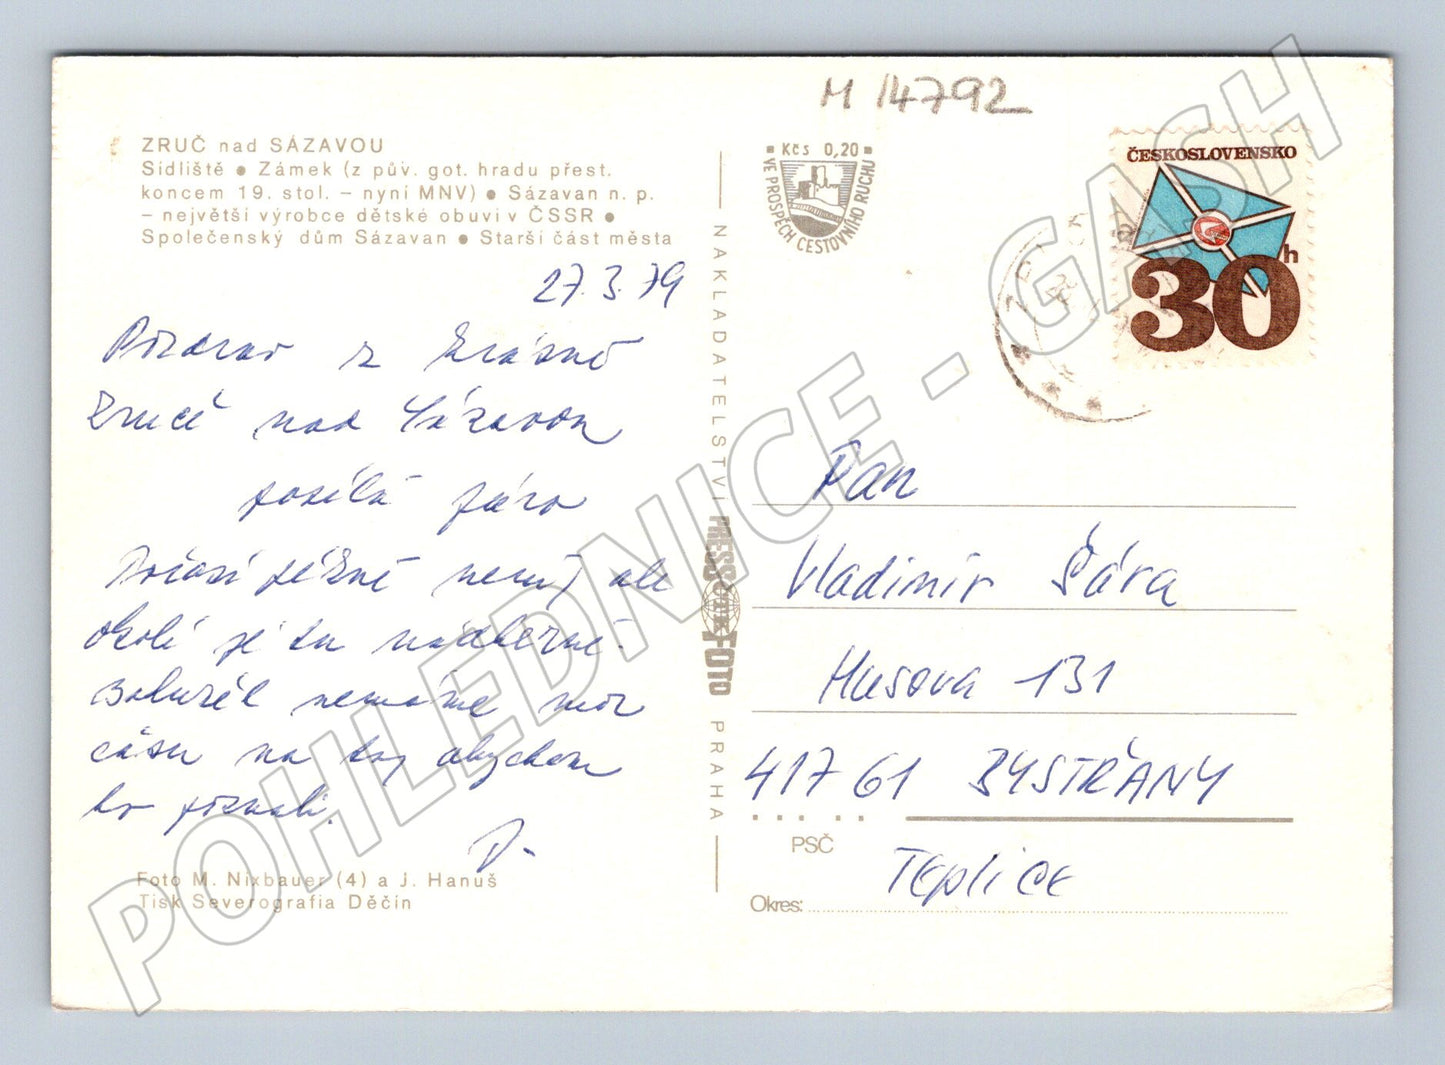 M 14792
ZRUČ nad SÁZAVOU
Sídliště ● Zámek (z pův. got. hradu přest.
koncem 19. stol. – nyní MNV) ● Sázavan n. p.
– největší výrobce dětské obuvi v ČSSR ●
Společenský dům Sázavan ● Starší část města
27.3.79
Pozdrav z krásné
Zruče nad Sázavou
posílá
Počasí pěkné není, ale
okolí je tu nádherné.
Bohužel nemáme moc
času na to, abychom
ho poznali.
Foto M. Nixbauer (4) a J. Hanuš
Tisk Severografia Děčín
NAKLADATELSTVÍ PRESSFOTO PRAHA
Kčs 0,20
VE PROSPĚCH CESTOVNÍHO RUCHU
ČESKOSLOVENSKO
30 h
Pan
Vladimír Šára
Husova 131
417 61 BYSTŘANY
PSČ
TEPLICE
Okres:
POHLEDNICE - GASH